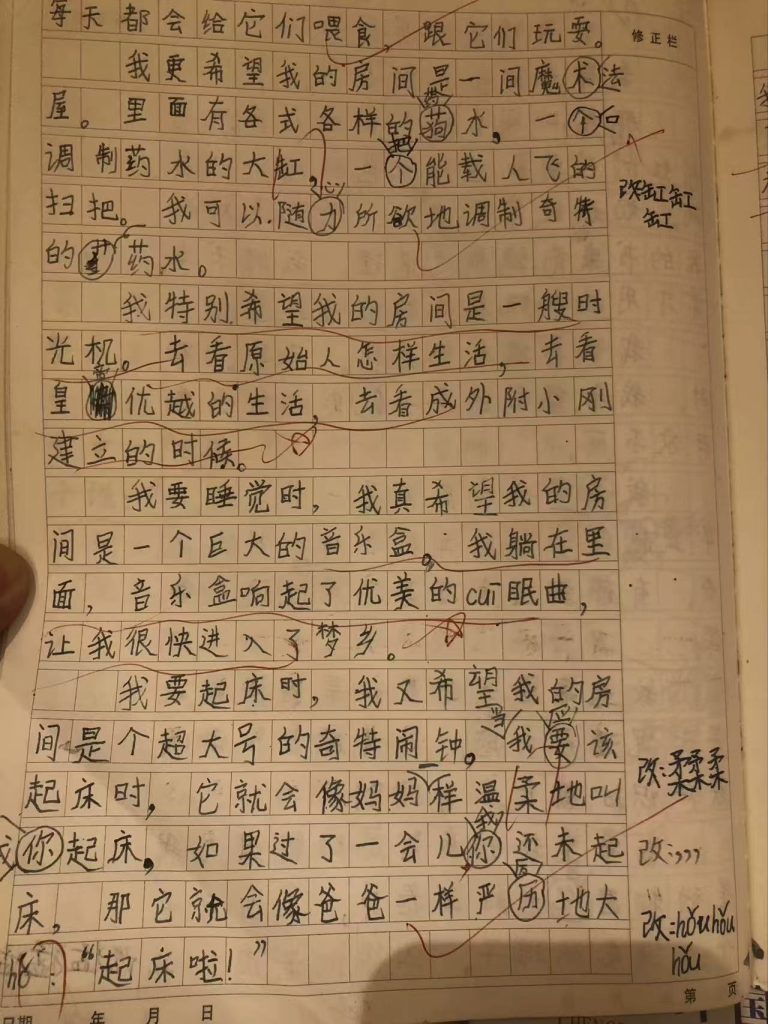 每天都会给它们喂食,跟它们玩耍。
修正栏
我更希望我的房间是一间魔术法
屋。里面有各式各样的药水,一个
调制药水的大缸,一个能载人飞的
把
改缸缸
缸
扫把。我可以随力所欲地调制奇特
心
的药水。
我特别希望我的房间是一艘时
光机。去看原始人怎样生活,去看
皇帝优越的生活,去看成外附小刚
建立的时候。
我要睡觉时,我真希望我的房
间是一个巨大的音乐盒。我躺在里
面,音乐盒响起了优美的cuī眠曲,
让我很快进入了梦乡。
我要起床时,我又希望我的房
间是个超大号的奇特闹钟。当我要该
起床时,它就会像妈妈一样温柔地叫
改:柔柔柔
我你起床。如果过了一会儿你还未起
我
改:,,,
床,那它就会像爸爸一样严历地大
厉
改:hǒu hǒu
hǒu
hǒ:“起床啦!”
年 月 日
第 页